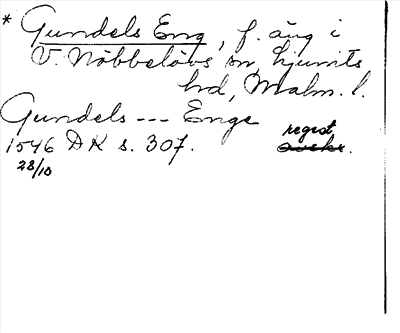 * Gundels Eng, f. äng i
V. Nöbbelövs sn, Ljunits
hd, Malm. l.
Gundels --- Enge
1546 DK s. 307. regist
28/10